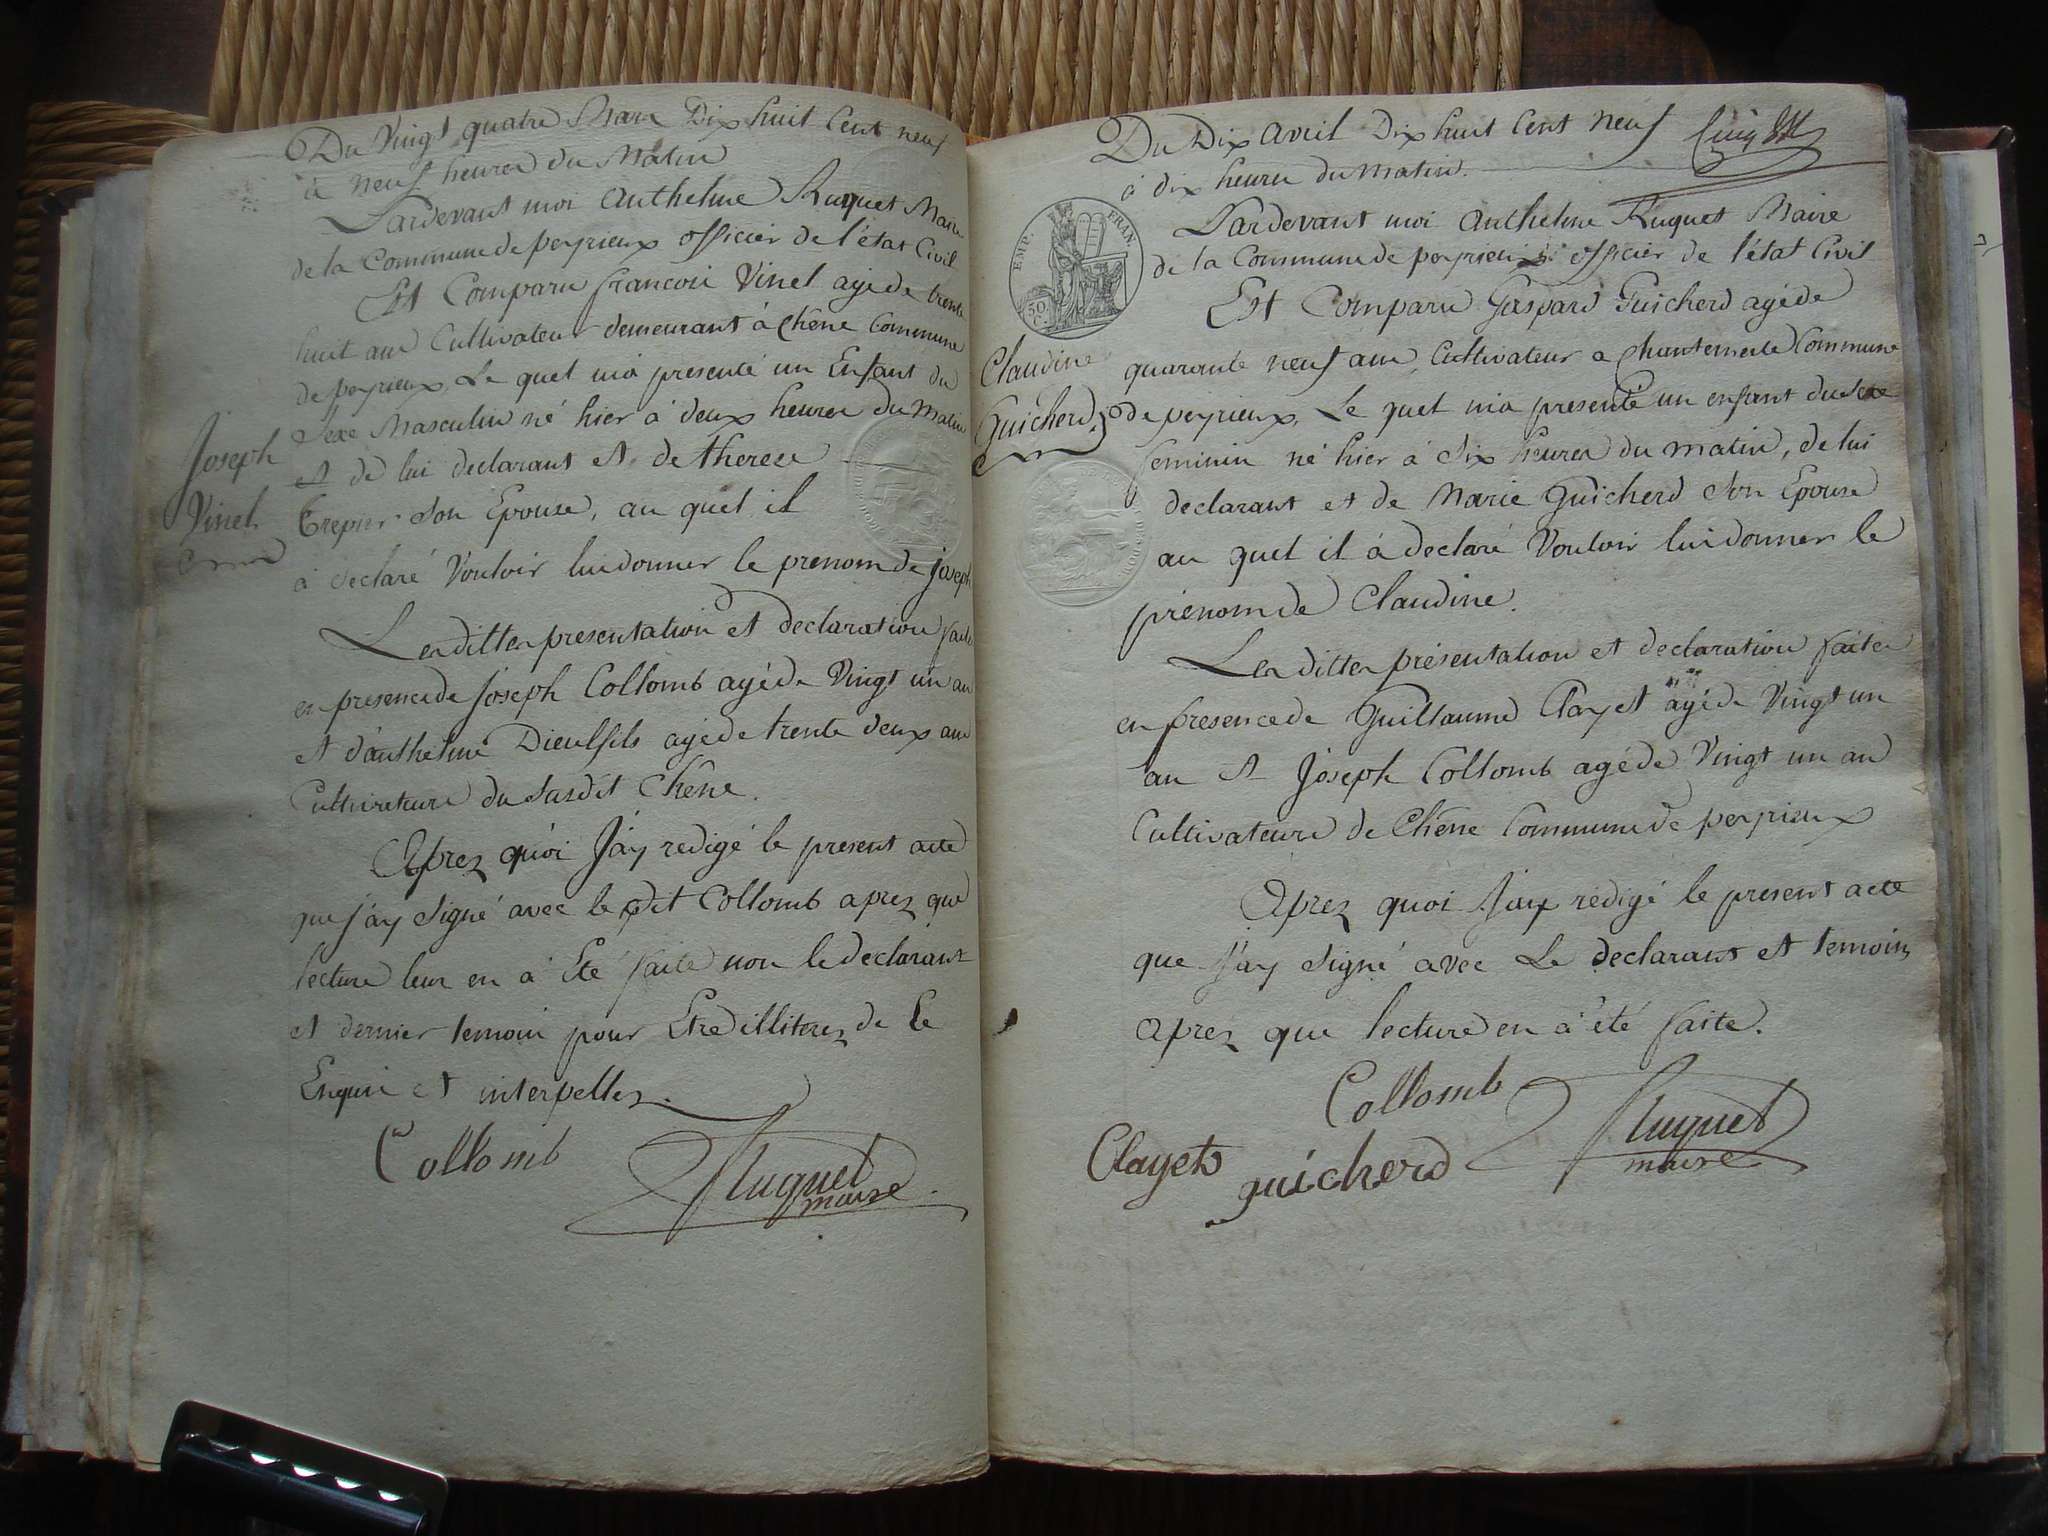 Du Vingt quatre Mars Dix huit Cent neuf
à neuf heures du Matin
Pardevant moi Anthelme Ruquet Maire
de la Commune de peyrieux officier de l'état Civil
Est Comparu francois Vinet agé de trente
huit ans Cultivateur demeurant à Chêne Commune
de peyrieux, Le quel m'a presenté un Enfant du
Sexe Masculin né hier à deux heures du Matin
Joseph
et de lui declarant et de therese
Vinet
Trepier son Epouse, au quel il
à declaré Vouloir lui donner le prenom de joseph
Les dittes presentation et declaration faites
en presence de Joseph Collomb agé de Vingt un an
et d'anthelme Dieulfils agé de trente deux ans
Cultivateurs du susdit Chêne.
Aprez quoi J'ay redigé le present acte
que j'ay signé avec le dit Collomb aprez que
lecture leur en à Eté faite non le declarant
et dernier temoin pour Etre illiterez de Ce
Enquis et interpellez.
Collomb
Ruquet
maire
Du Dix avril Dix huit Cent neuf
à dix heures du matin.
Pardevant moi Anthelme Ruquet Maire
EMP. FRAN.
50
de la Commune de peyrieux officier de l'état Civil
Est Comparu Gaspard Guicherd agé de
Claudine
quarante neuf ans, Cultivateur a Chantemerle Commune
Guicherd
de peyrieux, Le quel m'a presenté un enfant du Sexe
feminin né hier à Six heures du matin, de lui
declarant et de Marie Guicherd Son Epouse
au quel il à declaré Vouloir lui donner le
prenom de Claudine.
Les dittes présentation et declaration faites
en presence de Guillaume Clayet agé de Vingt un
an et Joseph Collomb agé de Vingt un an
Cultivateurs de Chêne Commune de peyrieux
Aprez quoi J'ay rédigé le present acte
que J'ay signé avec Le declarant et temoins
Aprez que lecture en à été faite.
Collomb
Ruquet
maire
Clayet
guicherd